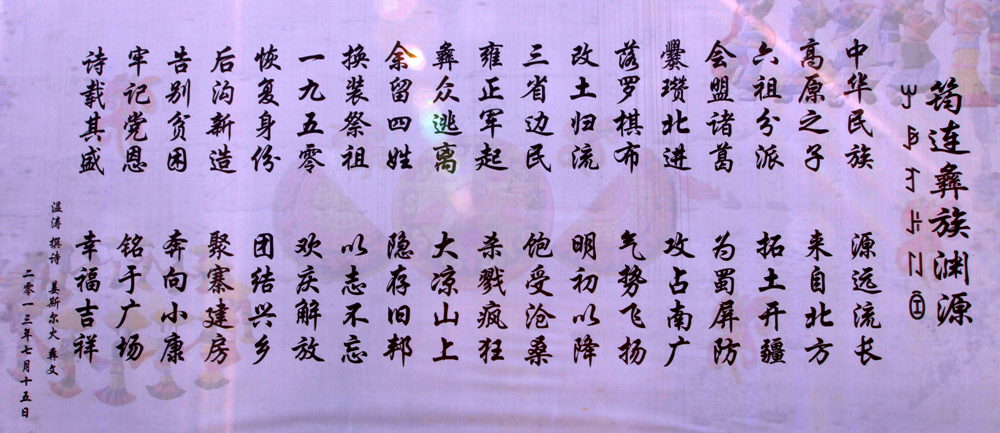 筠连彝族渊源
中华民族 源远流长
高原之子 来自北方
六祖分派 拓土开疆
会盟诸葛 为蜀屏防
爨瓒北进 攻占南广
落罗棋布 气势飞扬
改土归流 明初以降
三省边民 饱受沧桑
雍正军起 杀戮疯狂
彝众逃离 大凉山上
余留四姓 隐存旧邦
换装祭祖 以志不忘
一九五零 欢庆解放
恢复身份 团结兴乡
后沟新造 聚寨建房
告别贫困 奔向小康
牢记党恩 铭于广场
诗载其盛 幸福吉祥
温涛 撰诗 吉斯尔火 彝文
二零一三年七月十五日